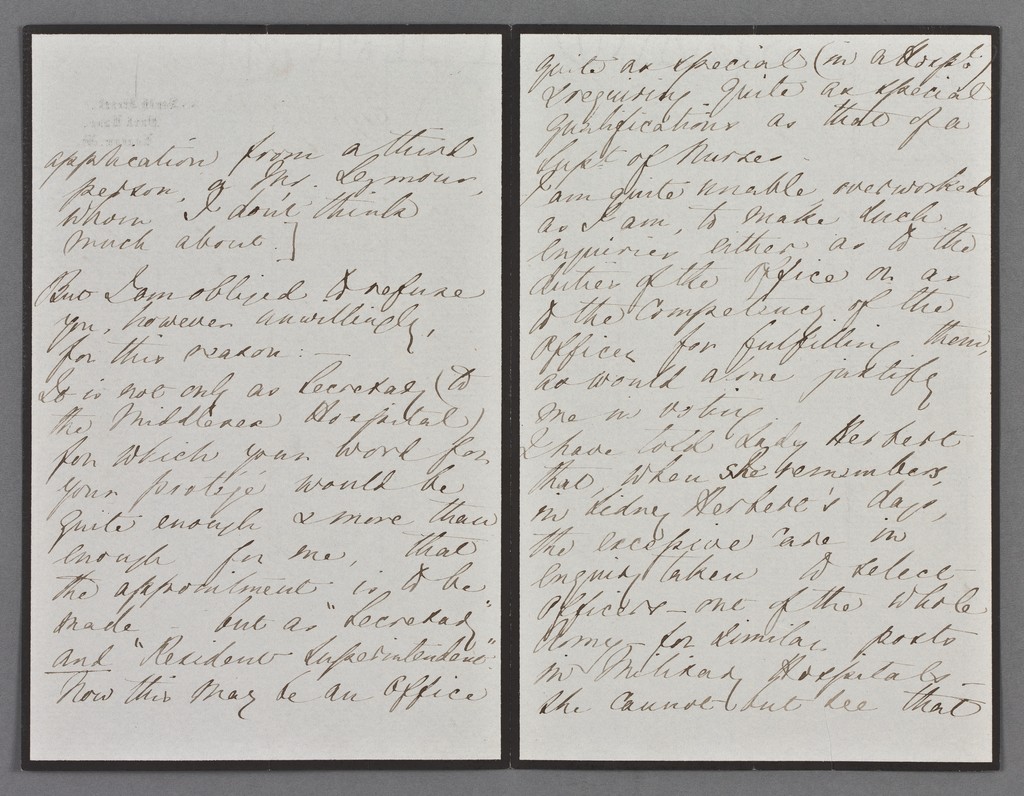 application from a third
person, a Mr. Seymour,
whom I don't think
much about.]
But I am obliged to refuse
you, however unwillingly,
for this reason:—
It is not only as Secretary (to
the Middlesex Hospital)
for which your word for
your protégé would be
quite enough & more than
enough for me, that
the appointment is to be
made – but as "Secretary"
and "Resident Superintendent".
Now this may be an Office
quite as special (in a Hospl.)
& requiring quite as special
qualifications as that of a
Supt. of Nurses.
I am quite unable, overworked
as I am, to make such
enquiries either as to the
duties of the Office or as
to the Competency of the
Officer for fulfilling them,
as would alone justify
me in voting.
I have told Lady Herbert
that, when she remembers,
in Sidney Herbert's days,
the excessive care in
enquiry taken to select
Officers – out of the whole
Army – for similar posts
in Military Hospitals –
she cannot but see that